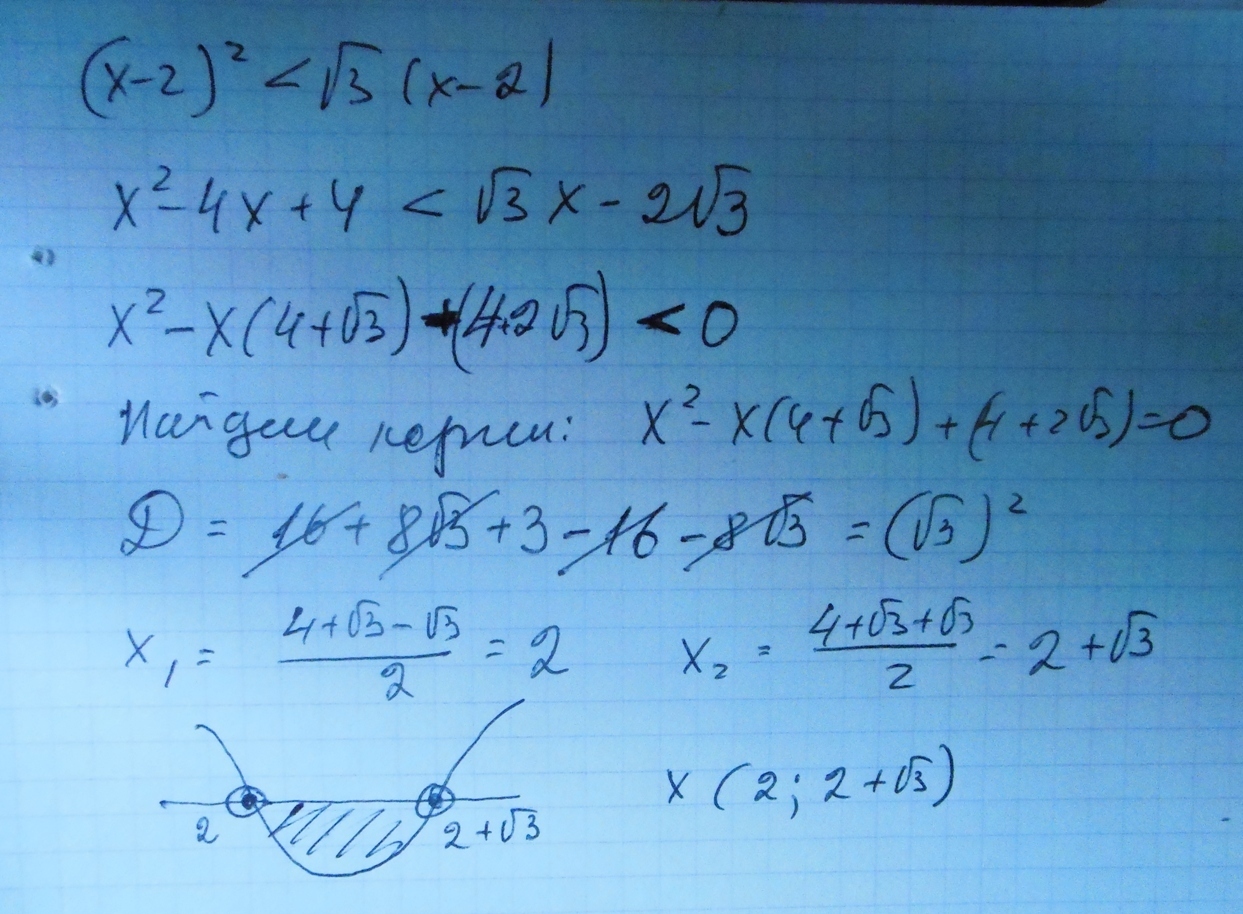 (x-2)² < √3 (x-2)
x² - 4x + 4 < √3 x - 2√3
x² - x(4+√3) + (4+2√3) < 0
Найдем корни: x² - x(4+√3) + (4+2√3) = 0
D = 16 + 8√3 + 3 - 16 - 8√3 = (√3)²
x₁ = (4+√3-√3)/2 = 2 x₂ = (4+√3+√3)/2 = 2+√3
x (2; 2+√3)
2 2+√3